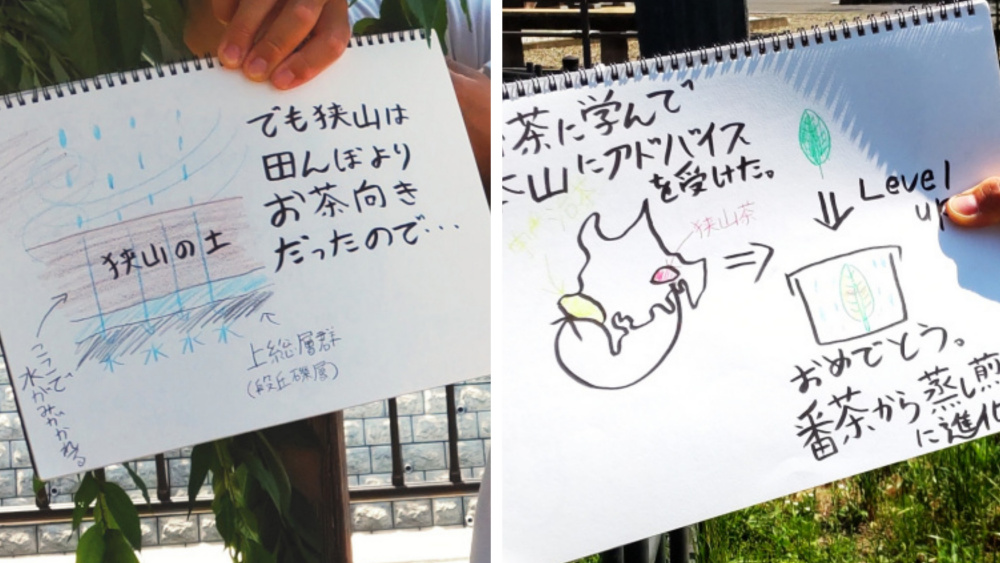 でも狭山は
田んぼより
お茶向き
だったので…
狭山の土
上総層群
(段丘礫層)
ここで
水がみがかれる
水 水 水 水
茶に学んで
山にアドバイス
を受けた。
狭山茶
Level
up
おめでとう。
番茶から蒸し煎
に進化